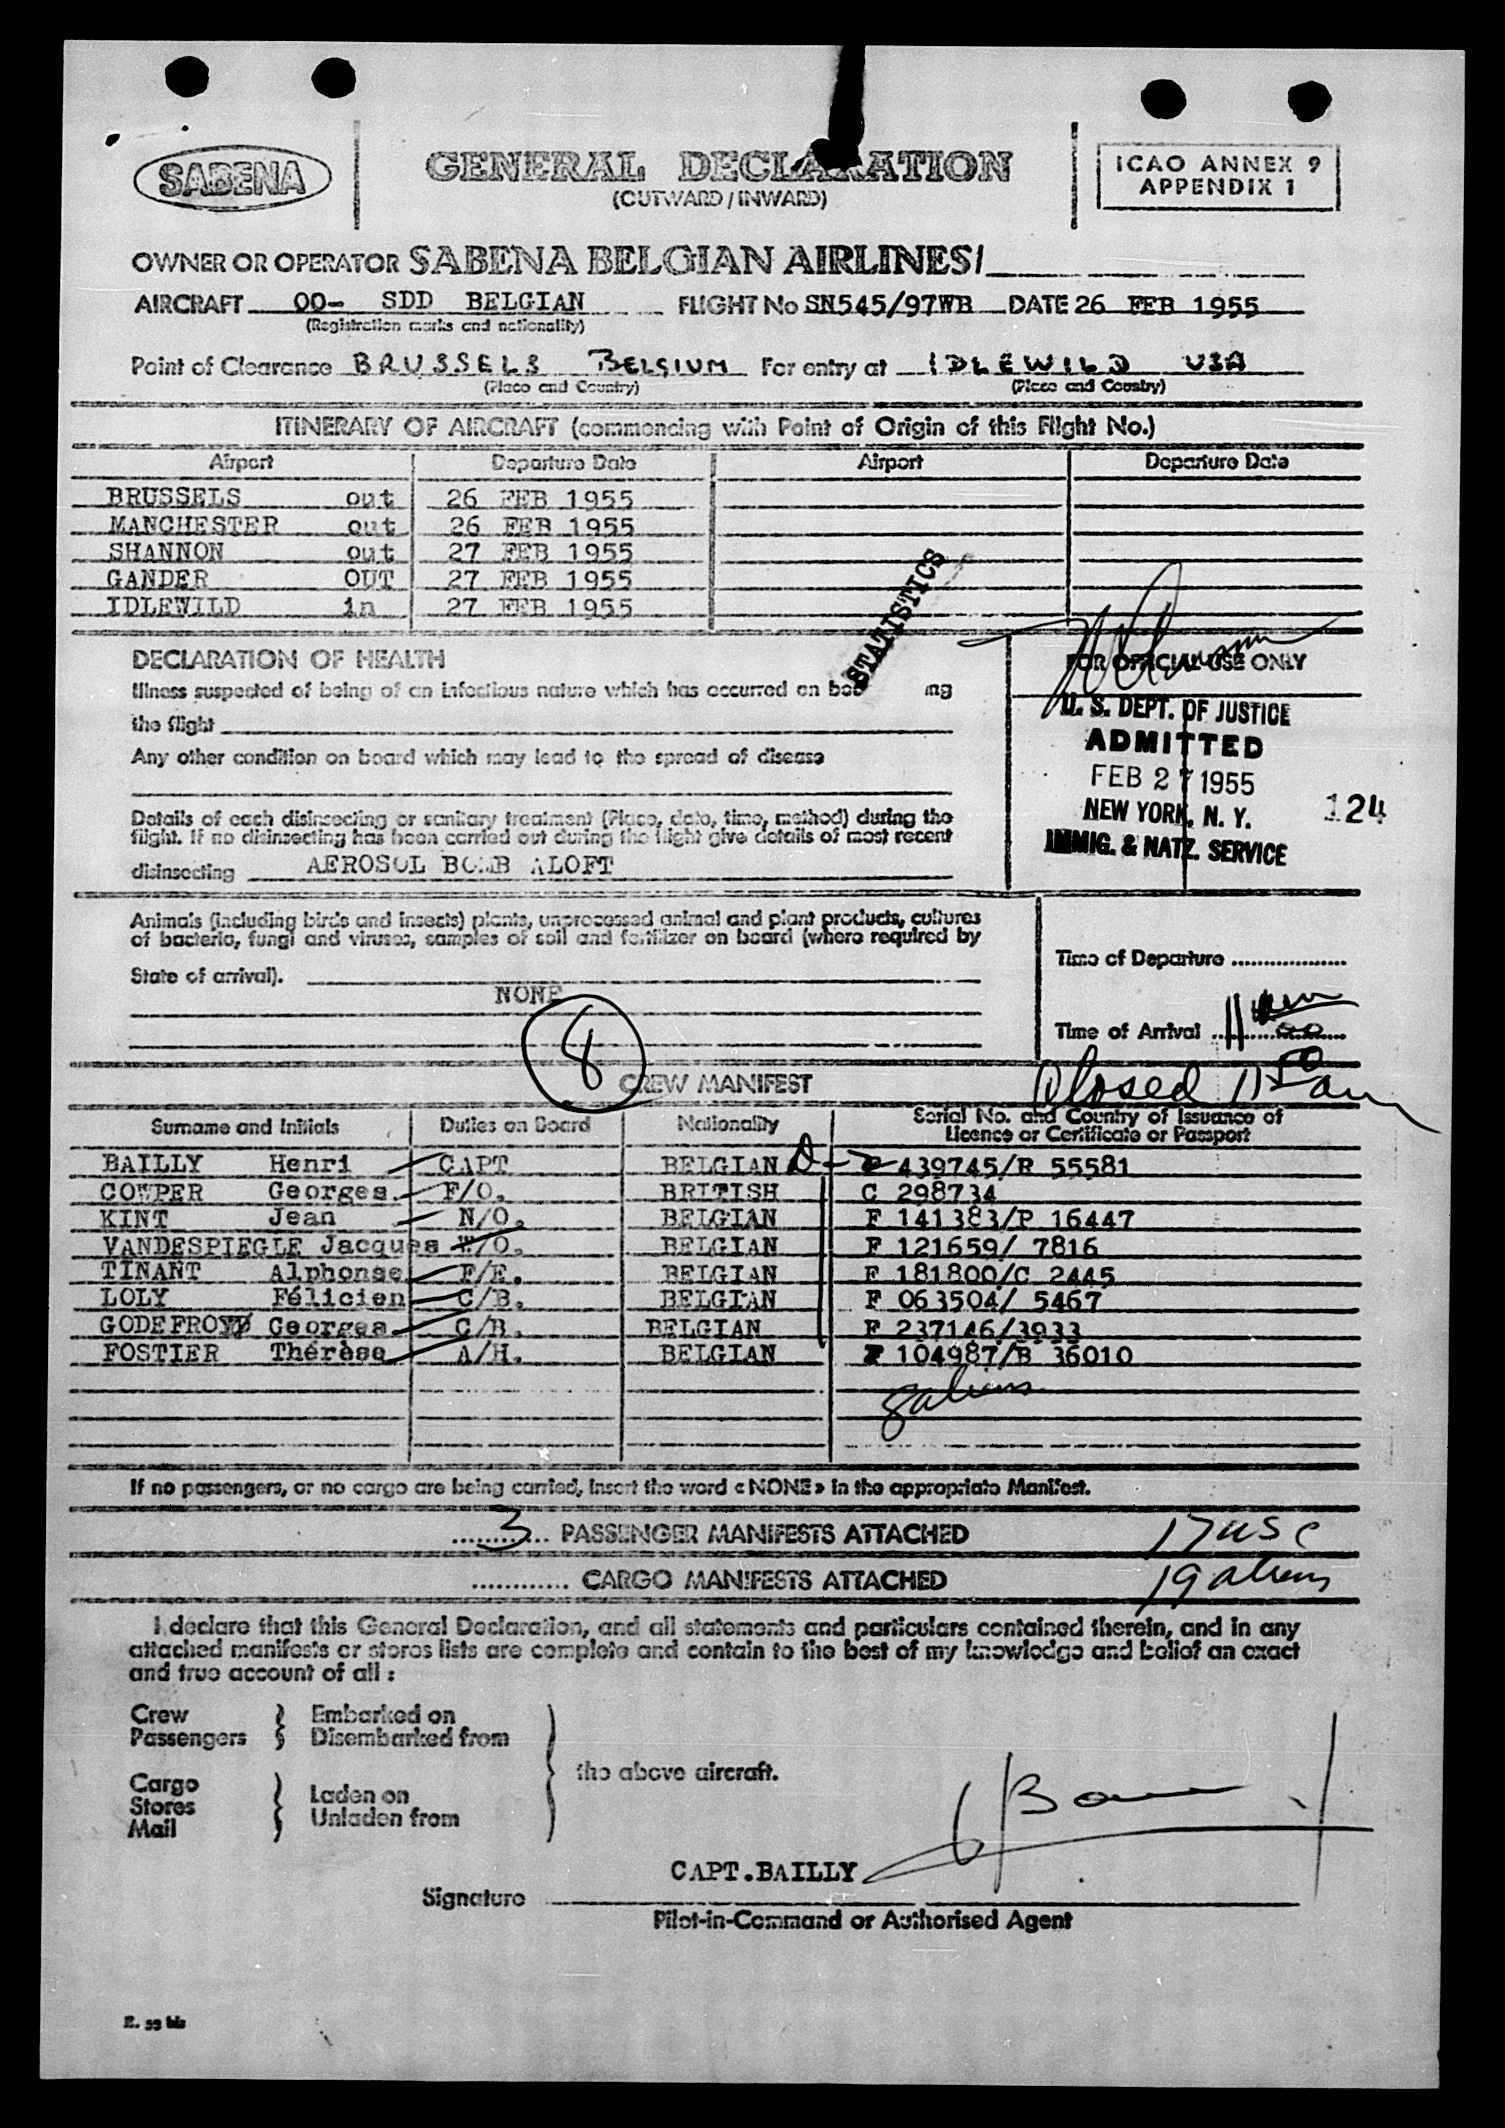 SABENA
GENERAL DECLARATION
(OUTWARD / INWARD)
ICAO ANNEX 9
APPENDIX 1
OWNER OR OPERATOR SABENA BELGIAN AIRLINES/
AIRCRAFT OO- SDD BELGIAN FLIGHT No SN545/97WB DATE 26 FEB 1955
(Registration marks and nationality)
Point of Clearance BRUSSELS BELGIUM For entry at IDLEWILD USA
(Place and Country) (Place and Country)
ITINERARY OF AIRCRAFT (commencing with Point of Origin of this Flight No.)
Airport Departure Date Airport Departure Date
BRUSSELS out 26 FEB 1955
MANCHESTER out 26 FEB 1955
SHANNON out 27 FEB 1955
GANDER OUT 27 FEB 1955
IDLEWILD in 27 FEB 1955
STATISTICS
DECLARATION OF HEALTH
Illness suspected of being of an infectious nature which has occurred on bo ing
the flight
Any other condition on board which may lead to the spread of disease
Details of each disinsecting or sanitary treatment (Place, date, time, method) during the
flight. If no disinsecting has been carried out during the flight give details of most recent
disinsecting AEROSOL BOMB ALOFT
FOR OFFICIAL USE ONLY
U. S. DEPT. OF JUSTICE
ADMITTED
FEB 27 1955
NEW YORK, N. Y.
IMMIG. & NATZ. SERVICE
124
Animals (including birds and insects) plants, unprocessed animal and plant products, cultures
of bacteria, fungi and viruses, samples of soil and fertilizer on board (where required by
State of arrival).
NONE
Time of Departure
Time of Arrival 11
Closed 11 50 am
8
CREW MANIFEST
Surname and Initials Duties on Board Nationality Serial No. and Country of Issuance of
Licence or Certificate or Passport
BAILLY Henri CAPT BELGIAN 439745/R 55581
COWPER Georges. F/O. BRITISH C 298734
KINT Jean N/O. BELGIAN F 141383/P 16447
VANDESPIEGLE Jacques W/O. BELGIAN F 121659/ 7816
TINANT Alphonse F/E. BELGIAN F 181800/C 2445
LOLY Félicien C/B. BELGIAN F 063504/ 5467
GODEFROY Georges C/B. BELGIAN F 237146/3933
FOSTIER Thérèse A/H. BELGIAN F 104987/B 36010
8 aliens
If no passengers, or no cargo are being carried, insert the word « NONE » in the appropriate Manifest.
3 PASSENGER MANIFESTS ATTACHED 17 USC
CARGO MANIFESTS ATTACHED 19 aliens
I declare that this General Declaration, and all statements and particulars contained therein, and in any
attached manifests or stores lists are complete and contain to the best of my knowledge and belief an exact
and true account of all :
Crew Embarked on
Passengers Disembarked from
the above aircraft.
Cargo Laden on
Stores Unladen from
Mail
CAPT.BAILLY
Signature
Pilot-in-Command or Authorised Agent
R. 99 bis